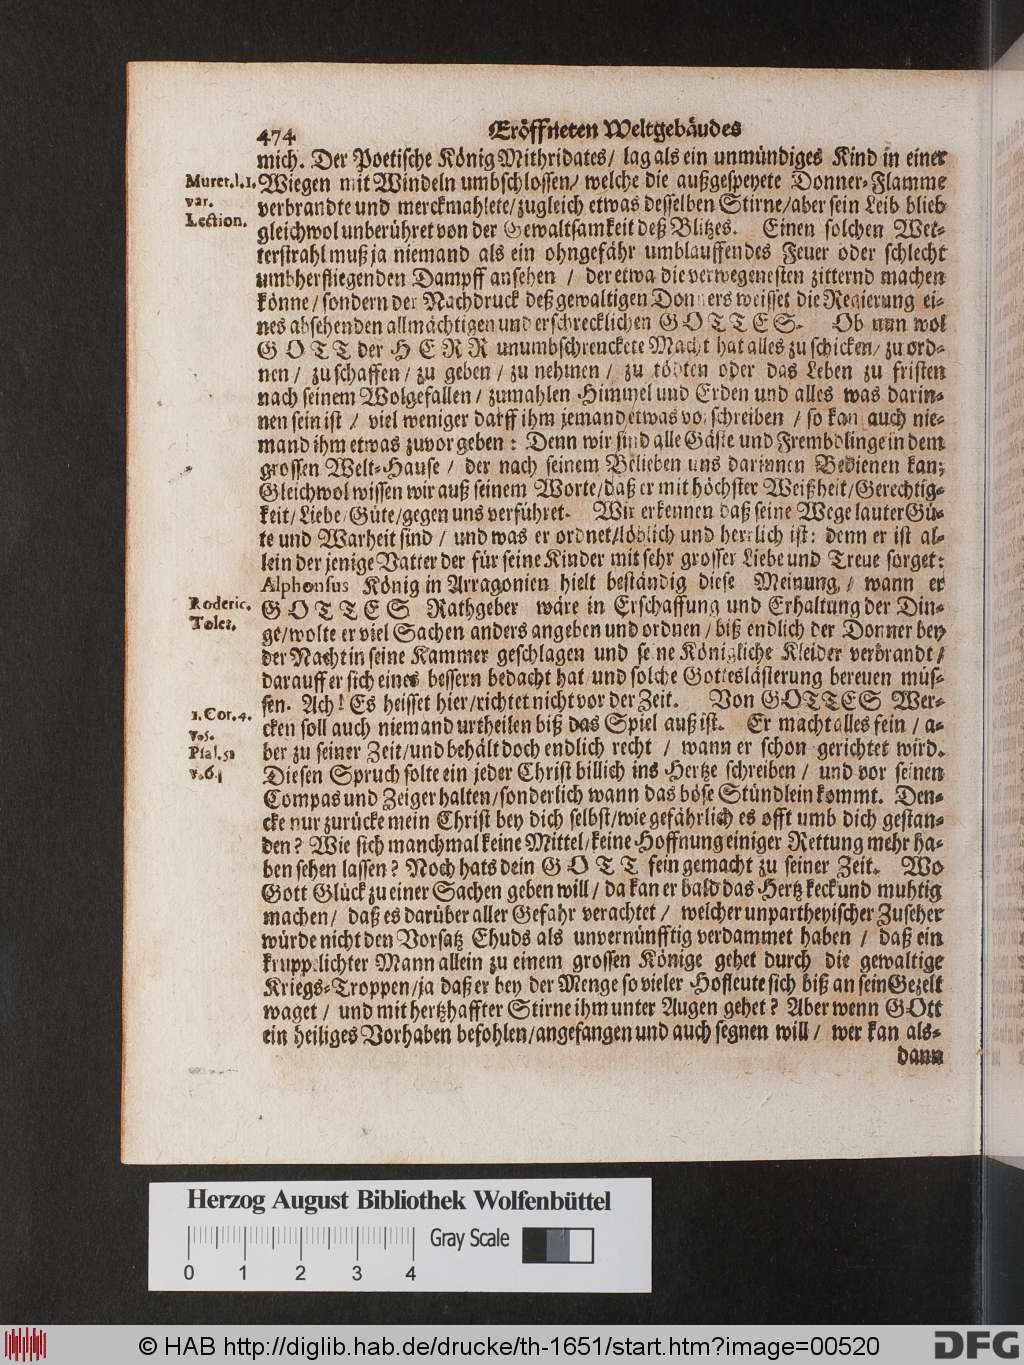 474 Eröffneten Weltgebäudes
mich. Der Poetische König Mithridates/ lag als ein unmündiges Kind in einer
Muret. l. 1. Wiegen mit Windeln umbschlossen/ welche die außgespeyete Donner-Flamme
var. verbrandte und merckmahlete/ zugleich etwas desselben Stirne/ aber sein Leib blieb
Lection. gleichwol unberühret von der Gewaltsamkeit deß Blitzes. Einen solchen Wet-
terstrahl muß ja niemand als ein ohngefähr umblauffendes Feuer oder schlecht
umbherfliegenden Dampff ansehen / der etwa die verwegenesten zitternd machen
könne/ sondern der Nachdruck deß gewaltigen Donners weisset die Regierung ei-
nes absehenden allmächtigen und erschrecklichen GOTTES. Ob nun wol
GOTT der HERR unumbschrenckete Macht hat alles zu schicken/ zu ord-
nen/ zu schaffen/ zu geben/ zu nehmen/ zu tödten oder das Leben zu fristen
nach seinem Wolgefallen/ zumahlen Himmel und Erden und alles was darin-
nen sein ist / viel weniger darff ihm jemand etwas vorschreiben / so kan auch nie-
mand ihm etwas zuvor geben: Denn wir sind alle Gäste und Frembdlinge in dem
grossen Welt-Hause / der nach seinem Belieben uns darinnen Bedienen kan;
Gleichwol wissen wir auß seinem Worte/ daß er mit höchster Weißheit/ Gerechtig-
keit/ Liebe/ Güte/ gegen uns verführet. Wir erkennen daß seine Wege lauter Gü-
te und Warheit sind / und was er ordnet/ löblich und herrlich ist: denn er ist al-
lein der jenige Vatter der für seine Kinder mit sehr grosser Liebe und Treue sorget:
Alphonsus König in Arragonien hielt beständig diese Meinung,/ wann er
Roderic. GOTTES Rathgeber wäre in Erschaffung und Erhaltung der Din-
Tolet. ge/ wolte er viel Sachen anders angeben und ordnen / biß endlich der Donner bey
der Nacht in seine Kammer geschlagen und seine Königliche Kleider verbrandt/
darauff er sich eines bessern bedacht hat und solche Gotteslästerung bereuen müs-
sen. Ach! Es heisset hier/ richtet nicht vor der Zeit. Von GOTTES Wer-
1. Cor. 4. cken soll auch niemand urtheilen biß das Spiel auß ist. Er macht alles fein / a-
v. 5. ber zu seiner Zeit/ und behält doch endlich recht / wann er schon gerichtet wird.
Psal. 51
v. 6. Diesen Spruch solte ein jeder Christ billich ins Hertze schreiben / und vor seinen
Compas und Zeiger halten/ sonderlich wann das böse Stündlein kommt. Den-
cke nur zurücke mein Christ bey dich selbst/ wie gefährlich es offt umb dich gestan-
den? Wie sich manchmal keine Mittel/ keine Hoffnung einiger Rettung mehr ha-
ben sehen lassen? Noch hats dein GOTT fein gemacht zu seiner Zeit. Wo
Gott Glück zu einer Sachen geben will/ da kan er bald das Hertz keck und muhtig
machen/ daß es darüber aller Gefahr verachtet / welcher unpartheyischer Zuseher
würde nicht den Vorsatz Ehuds als unvernünfftig verdammet haben / daß ein
kruppelichter Mann allein zu einem grossen Könige gehet durch die gewaltige
Kriegs-Troppen/ ja daß er bey der Menge so vieler Hofleute sich biß an sein Gezelt
waget / und mit hertzhaffter Stirne ihm unter Augen gehet? Aber wenn GOtt
ein heiliges Vorhaben befohlen/ angefangen und auch segnen will / wer kan als-
dann
Herzog August Bibliothek Wolfenbüttel
Gray Scale
0 1 2 3 4
© HAB http://diglib.hab.de/drucke/th-1651/start.htm?image=00520
DFG